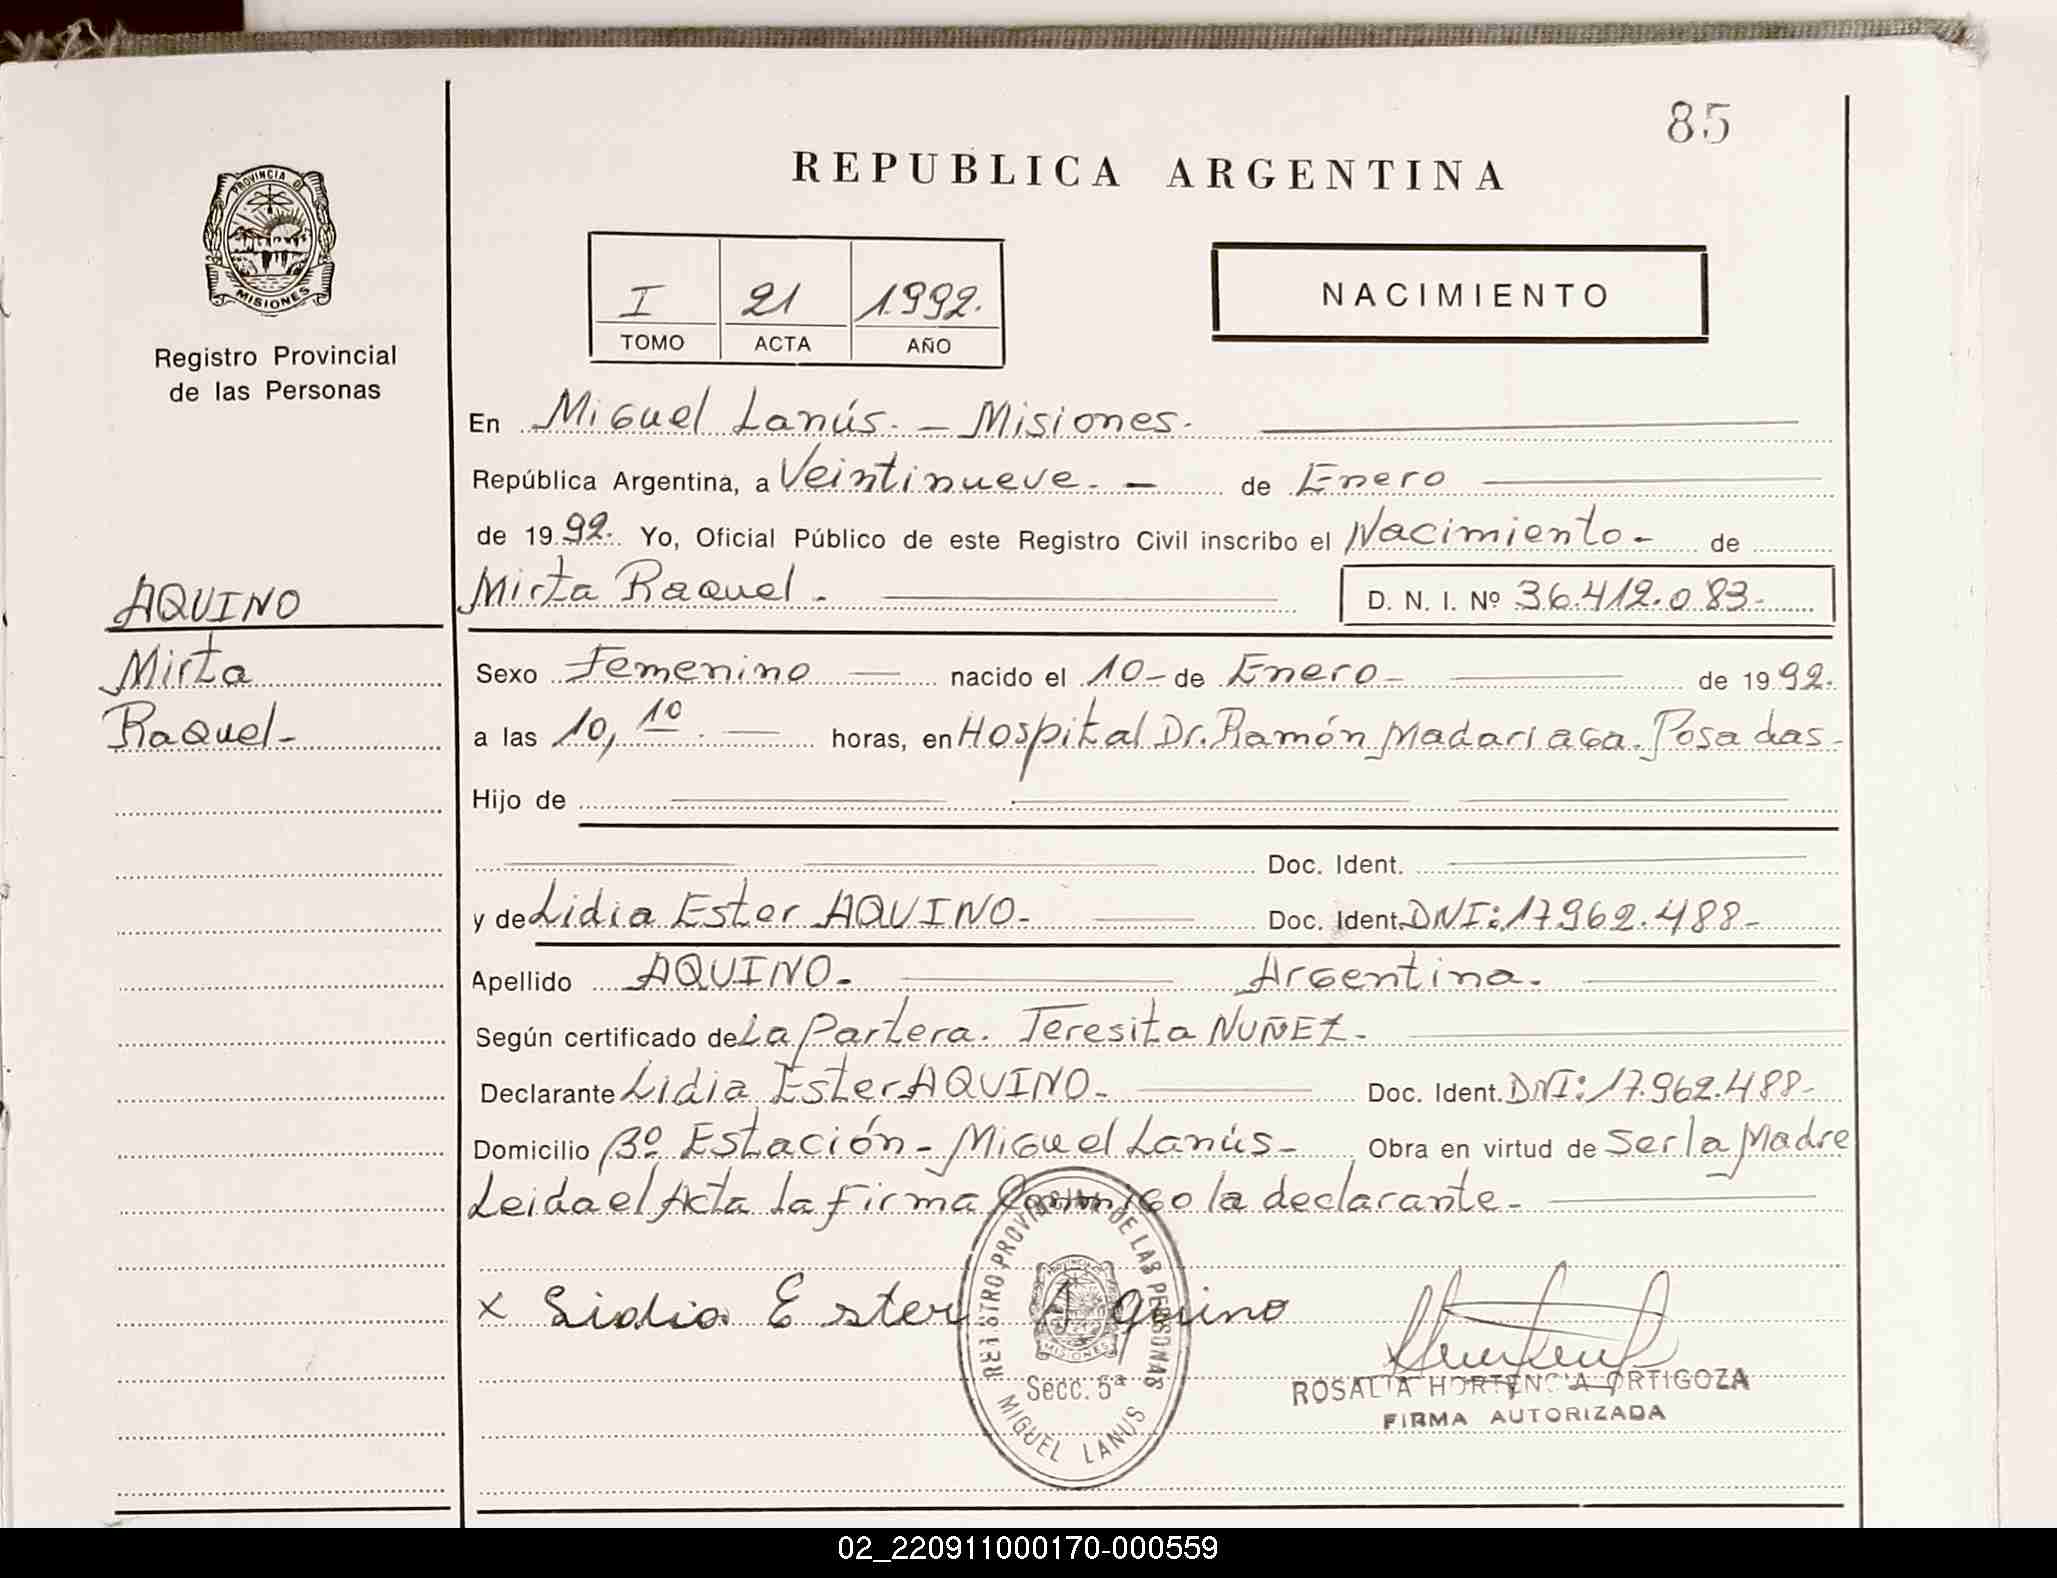 85
REPUBLICA ARGENTINA
PROVINCIA DE
MISIONES
Registro Provincial
de las Personas
I 21 1.992.
TOMO ACTA AÑO
NACIMIENTO
En Miguel Lanús. - Misiones.
República Argentina, a Veintinueve. - de Enero
de 1992. Yo, Oficial Público de este Registro Civil inscribo el Nacimiento - de
AQUINO
Mirta Raquel. D. N. I. Nº 36.412.083-
Mirta
Raquel-
Sexo Femenino nacido el 10- de Enero- de 1992.
a las 10,10. horas, en Hospital Dr. Ramón Madariaga. Posadas-
Hijo de
Doc. Ident.
y de Lidia Ester AQUINO- Doc. Ident. DNI: 17.962.488-
Apellido AQUINO- Argentina.
Según certificado de La Partera. Teresita NUÑEZ-
Declarante Lidia Ester AQUINO- Doc. Ident. DNI: 17.962.488-
Domicilio Bº Estación - Miguel Lanús- Obra en virtud de Ser la Madre
Leida el Acta la firma Conmigo la declarante-
x Lidia Ester Aquino
REGISTRO PROVINCIAL DE LAS PERSONAS
MISIONES
Secc. 5ª
MIGUEL LANUS
ROSALIA HORTENCIA ORTIGOZA
FIRMA AUTORIZADA
02_220911000170-000559